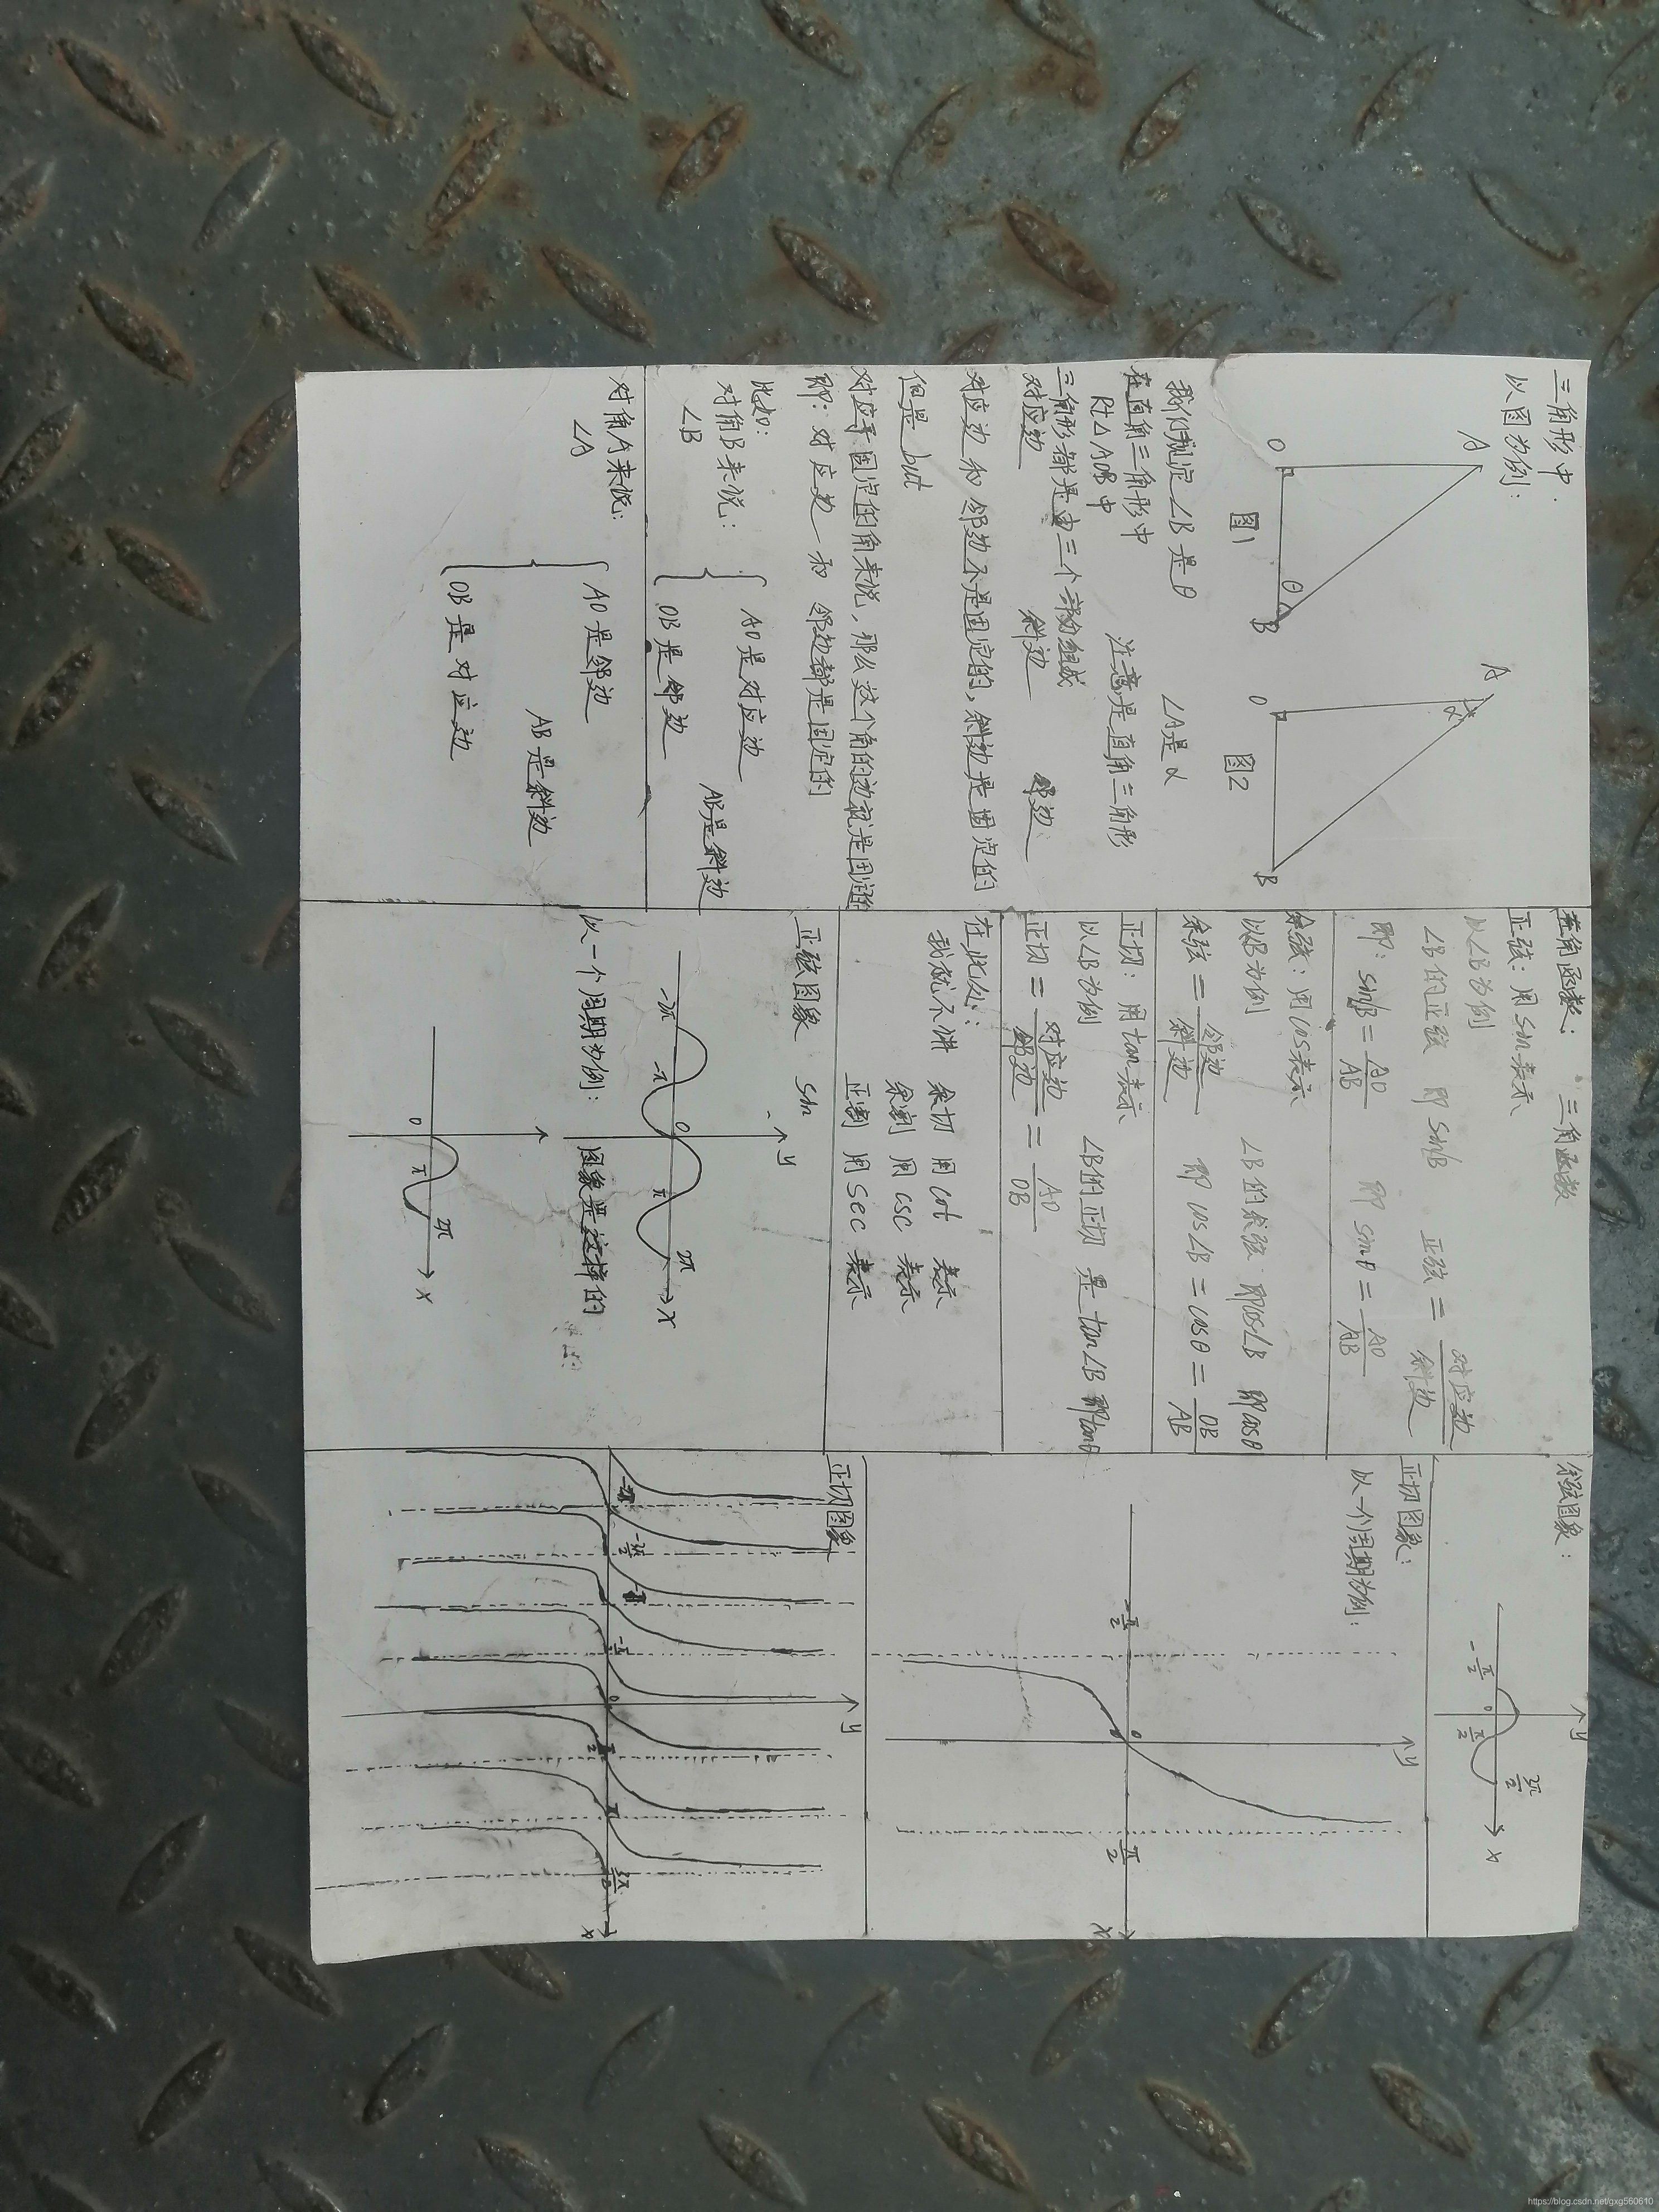 三角形中:
以图为例:
A
O
θ
B
图1
A
α
O
B
图2
我们规定∠B是θ ∠A是α
在直角三角形中 注意是直角三角形
Rt△AOB中
三角形都是由三个部分组成
对应边 斜边 邻边
对应边和邻边不是固定的,斜边是固定的
但是but
对应于固定的角来说,那么这个角的边就是固定的
即:对应边和邻边都是固定的
比如:
对角B来说:
∠B
AO是对应边
OB是邻边
AB是斜边
对角A来说:
∠A
AO是邻边
OB是对应边
AB是斜边
三角函数
正弦:用sin表示
以∠B为例
∠B的正弦 即 sin∠B 正弦=对应边/斜边
即:sin∠B=AO/AB 即 sinθ=AO/AB
余弦:用cos表示
以∠B为例 ∠B的余弦 即cos∠B 即cosθ
余弦=邻边/斜边 即cos∠B=cosθ=OB/AB
正切:用tan表示
以∠B为例 ∠B的正切是tan∠B 即tanθ
正切=对应边/邻边=AO/OB
在此处:
我就不讲 余切 用cot 表示
余割 用csc 表示
正割 用sec 表示
正弦图象 sin
y
-2π -π 0 π 2π x
以一个周期为例: 图象是这样的
0 π 2π x
余弦图象:
y
-π/2 0 π/2 3π/2 x
正切图象:
以一个周期为例:
y
-π/2 0 π/2 x
正切图象
y
-3π/2 -π/2 0 π/2 π 3π/2 x
https://blog.csdn.net/gxg560610